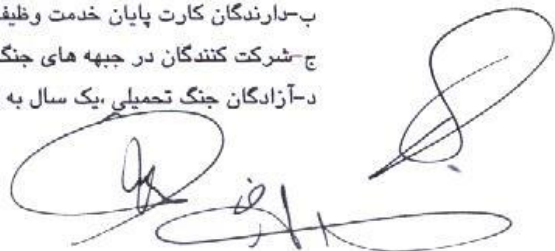 ب-دارندگان کارت پایان خدمت وظیف
ج-شرکت کنندگان در جبهه های جنگ
د-آزادگان جنگ تحمیلی ،یک سال به